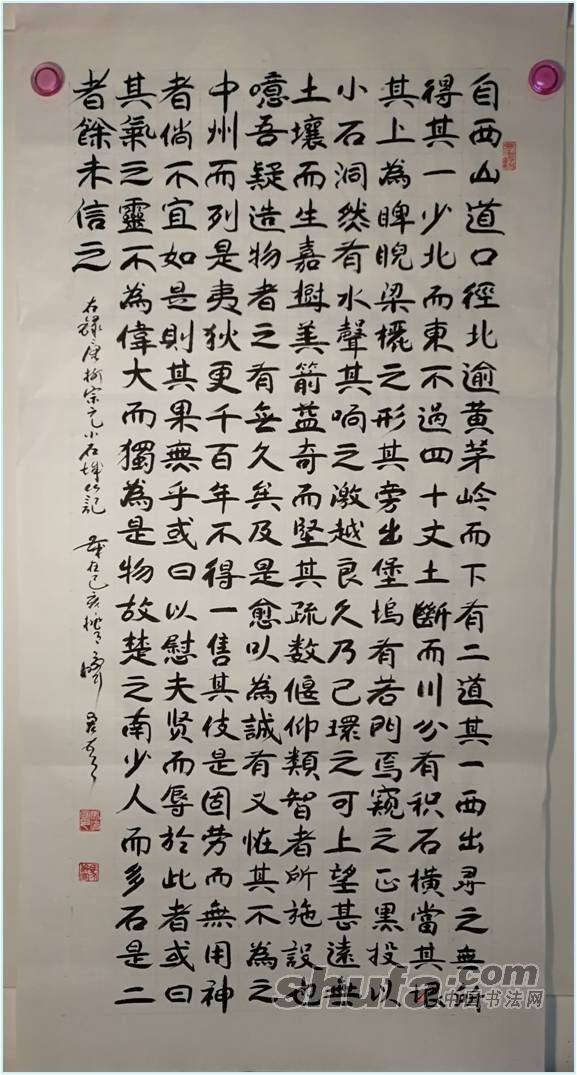 自西山道口徑北逾黃茅岭而下有二道其一西出尋之無所
得其一少北而東不過四十丈土斷而川分有积石橫當其垠
其上為睥睨梁欐之形其旁出堡塢有若門焉窺之正黑投以
小石洞然有水聲其响之激越良久乃已環之可上望甚遠無
土壤而生嘉樹美箭益奇而堅其疏数偃仰類智者所施設也
噫吾疑造物者之有無久矣及是愈以為誠有又怪其不為之
中州而列是夷狄更千百年不得一售其伎是固劳而無用神
者倘不宜如是則其果無乎或曰以慰夫贤而辱於此者或曰
其氣之靈不為偉大而獨為是物故楚之南少人而多石是二
者餘未信之
右錄唐柳宗元小石城山記 歲在己亥
shufa.com
中国书法网